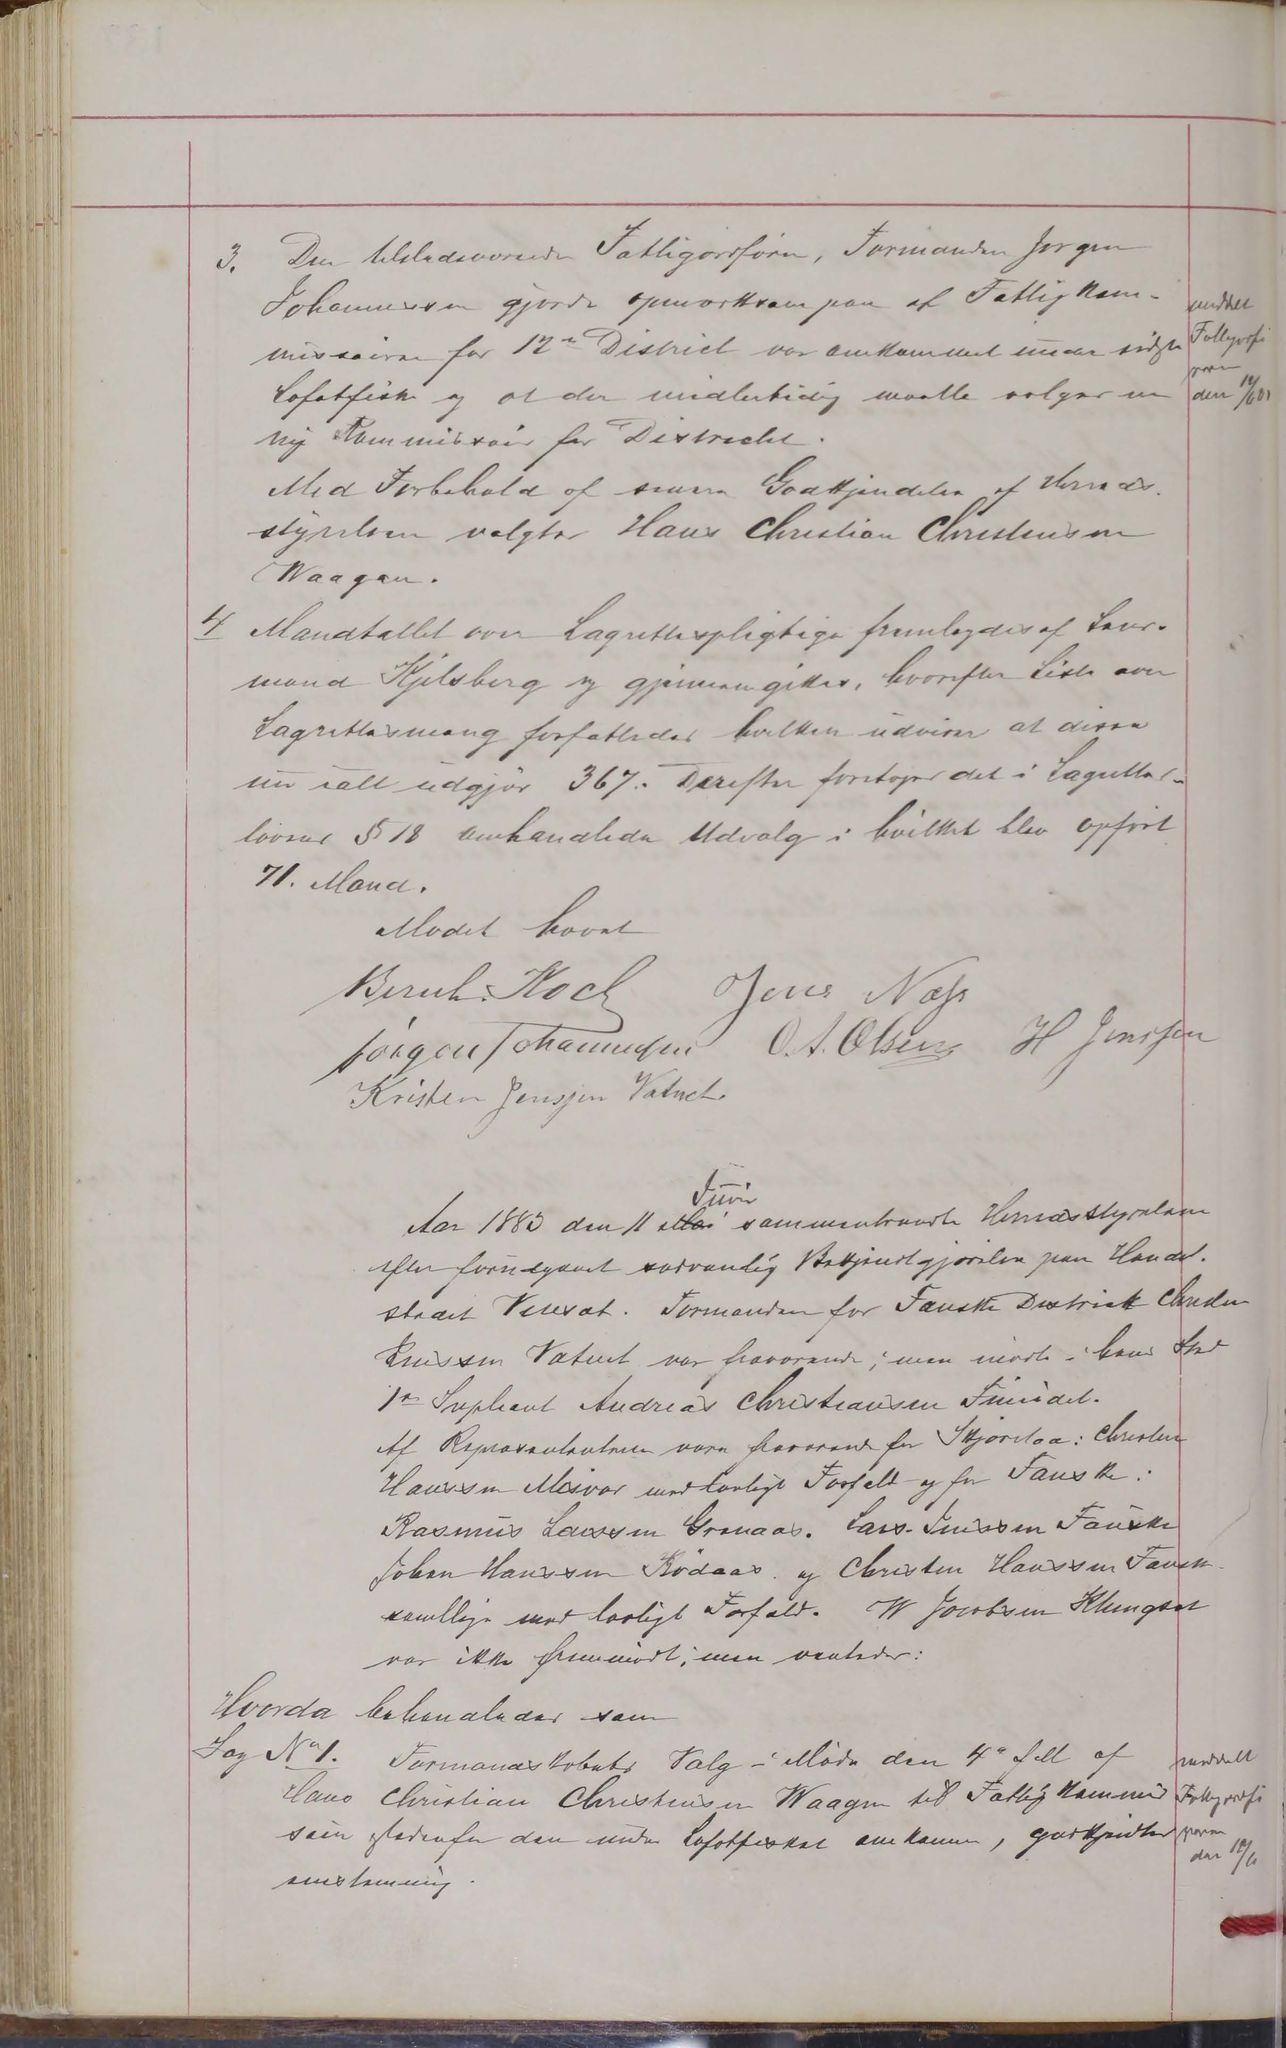 3. Den tilstedeværende Fattigordförer, Formanden Jørgen
Johannessen gjorde opmærksom paa at Fattigkom-
missæren for 12te District var omkommet under sidste
Lofotfiske og at der midlertidig maatte vælges en
ny Kommissær for Districtet.
Med Forbehold af senere Godkjendelse af Herreds-
styrelsen valgtes Hans Christian Christensen
Waagan.
meddelt
Fattigordfö
reren
den 12/6 83
4 Mandtallet over Lagrettespligtige fremlagdes af Lens-
mand Kjelsberg og gjennemgikkes, hvorefter Liste over
Lagrettesmænd forfattedes hvilken udviser at disse
nu ialt udgjör 367. Derefter foretoges det i Lagrettes-
lovens § 18 omhandlede Udvalg i hvilket blev opfört
71. Mand.
Mødet hævet
Bernh. Koch Jens Næss
Jørgen Johannessen O. A. Olsen H Jenssen
Kristen Jenssen Vatnet.
Juni
Aar 1883 den 11 sammentraadte Herredsstyrelsen
efter forudgaaet sædvanlig Bekjendtgjørelse paa Handel-
stedet Venset. Formanden for Fauske District Christen
Jenssen Vatnet var fraværende; men mødte i hans Sted
1ste Supleant Andreas Christiansen Fineidet.
Af Repræsentanterne vare fraværende for Skjerstad: Christen
Hanssen Misvær med lovligt Forfald og for Fauske:
Rasmus Larssen Grønaas. Lars Jenssen Fauske
Johan Hanssen Rødaas og Christen Hanssen Fauske
samtlige med lovligt Forfald. W Jacobsen Klungset
var ikke fremmødt; men ventedes:
Hvorda behandledes som
Sag No 1. Formandskabets Valg i Møde den 4de af
Hans Christian Christensen Waagan til Fattigkommis
sær istedenfor den under Lofotfisket omkomne, godkjendtes
enstemmig.
meddelt
Fattigordfö
reren
den 12/6